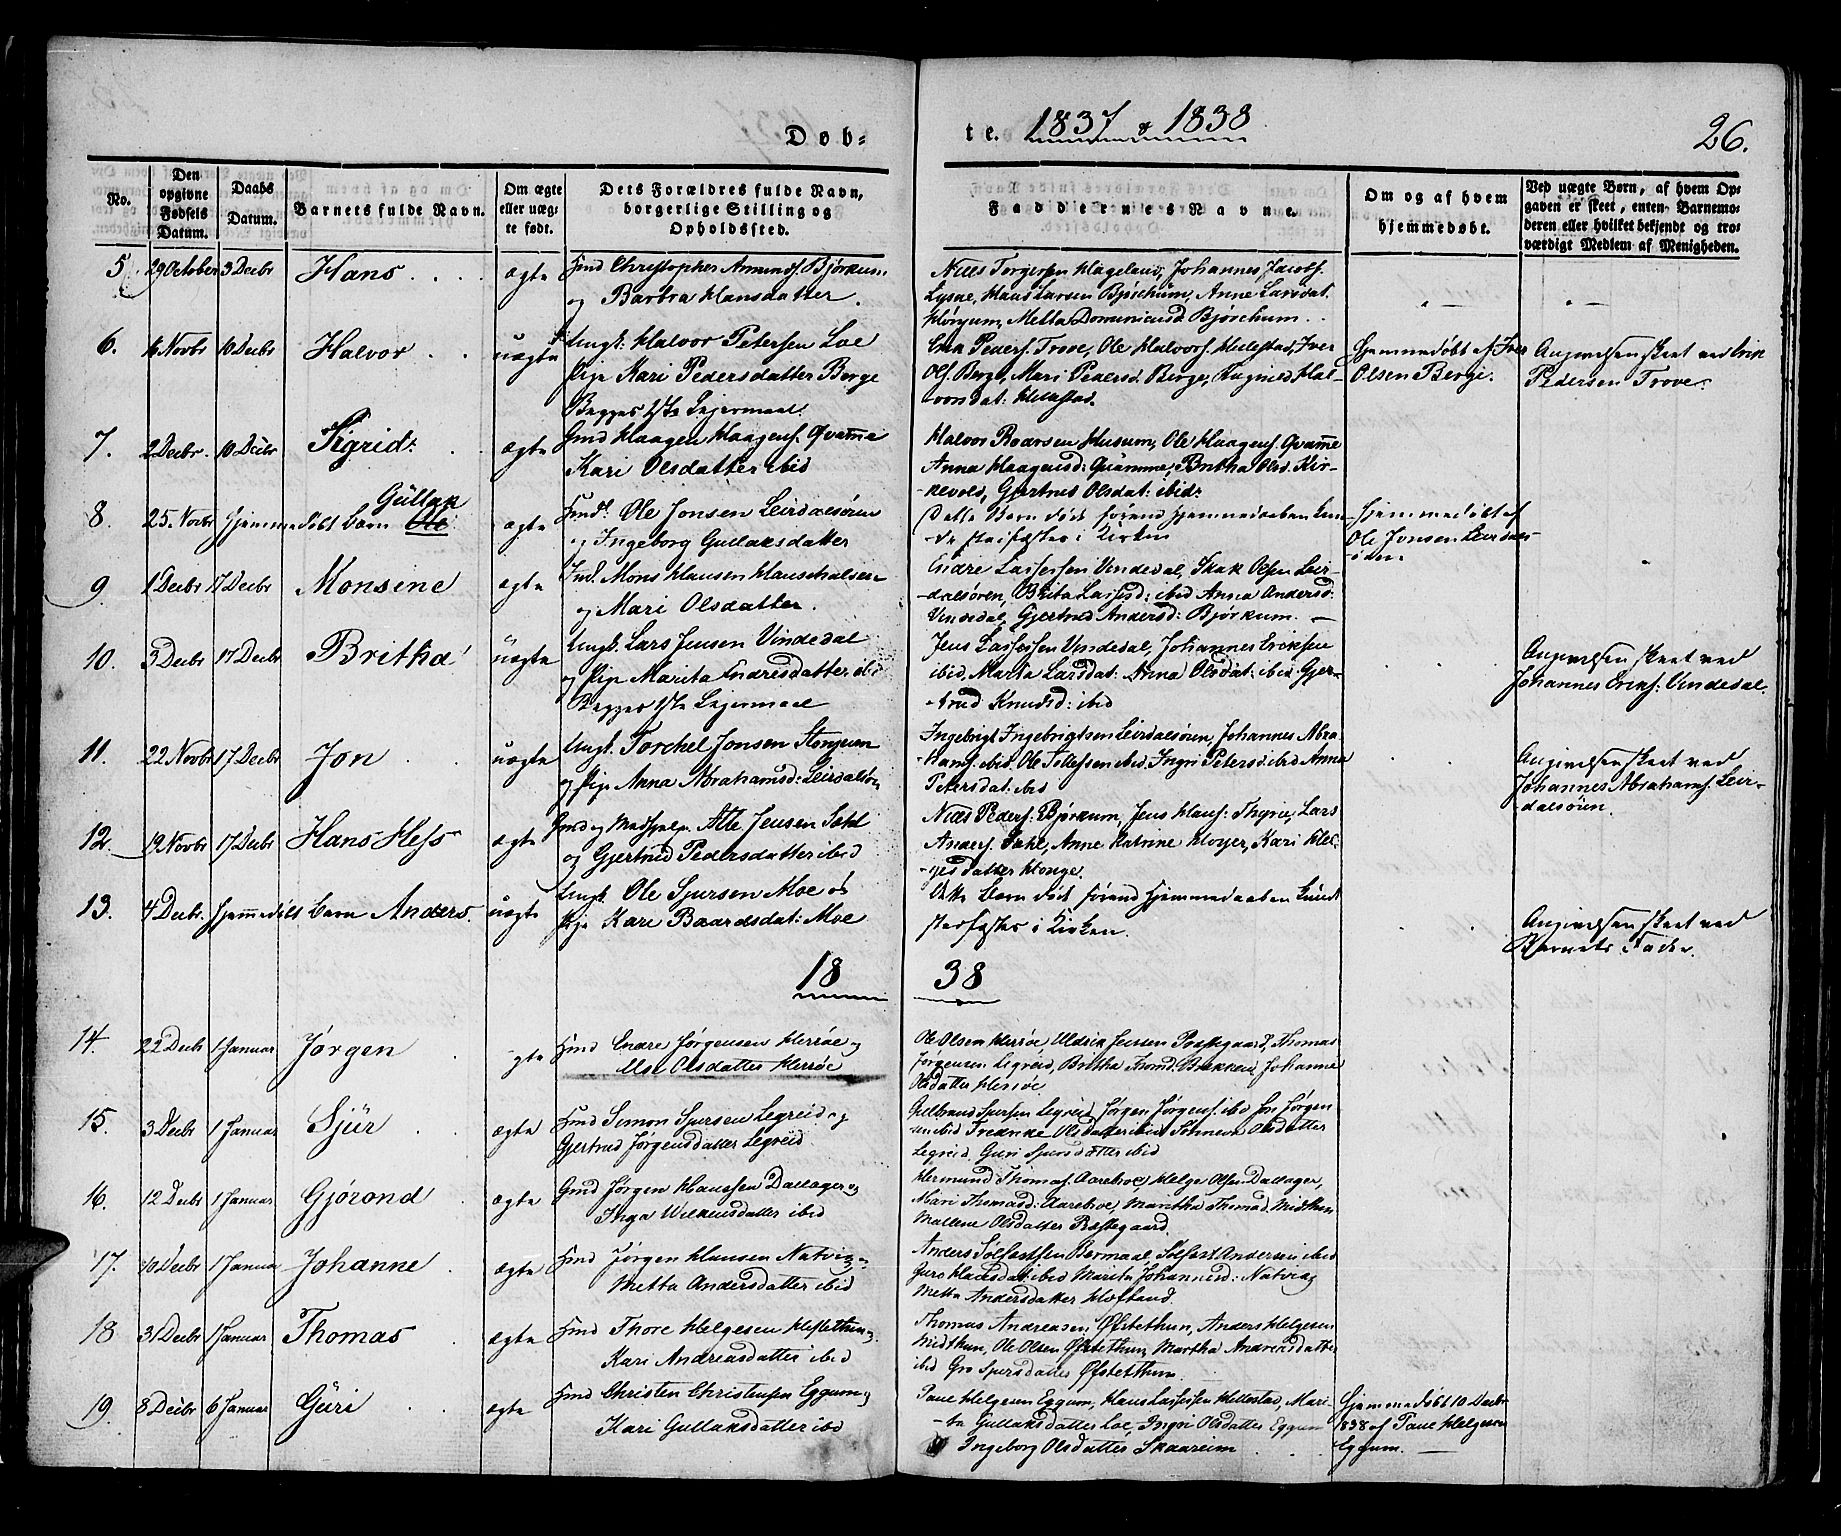 Døb-
te. 1837 & 1838
26.
No.
Den opgivne Fødsels Datum.
Daabs Datum.
Barnets fulde Navn.
Om ægte eller uægte født.
Dets Forældres fulde Navn, borgerlige Stilling og Opholdssted.
Faddernes Navne.
Om og af hvem hjemmedøbt.
Ved uægte Børn, af hvem Opgaven er skeet, enten Barnemoderen eller hvilket bekjendt og troværdigt Medlem af Menigheden.
5 29 October 3 Decbr Hans ægte
Gmd Christopher Amunds. Bjørkum
og Barbra Hansdatter.
Niels Torgersen Hageland, Johannes Jacobs.
Lysne, Hans Larsen Bjørchum, Anne Larsdat.
Metta Dominicusd Bjørchum.
6. Novbr 10 Decbr Halvor uægte
Ungk. Halvor Petersen Loe
Pige Kari Pedersdatter Berge
Begges 1ste Leiermaal.
Erik Peders. Trove, Ole Halvors. Hellestad, Iver
Ols. Berge, Mari Pedersd Berge, Hal-
vorsdat: Hellestad.
Hjemmedøbt af Iver
Olsen Berge.
Angivelsen skeet ved Erik
Pedersen Trove.
7. 2 Decbr. 10 Decbr Sigrid. ægte
Gmd Haagen Haagens. Qvamme
Kari Olsdatter ibid
Halvor Baarsen Husum, Ole Haagens. Qvamme
Anna Haagensd: Quamme, Britha Olsd. Kir-
kevold, Gjertrud Olsdat: ibid:
8. 25. Novbr Hjemmedøbt barn Gullak Ole ægte
Ole Jonsen Leirdalsøren
og Ingeborg Gullaksdatter
Dette Barn døde førend Hjemmedaaben kun-
de stadfæstes i Kirken
Hjemmedøbt af
Ole Jonsen Leirdals-
øren.
9. 1 Decbr 17 Decbr Monsine ægte
Ind. Mons Hansen
og Mari Olsdatter.
Endre Lassesen Vindedal, Isak Olsen Leir-
dalsøren, Brita Lassesd: ibid Anna Andersd:
Vindedal, Gjertrud Andersd: Bjørkum.
10. 3 Decbr 17 Decbr Britha uægte
Ungk. Lars Jensen Vindedal
og Pige Marita Endresdatter ibid
Begges 1ste Leiermaal
Jens Lassesen Vindedal, Johannes Eriksen
ibid, Marta Larsdat: Anna Olsdat: ibid: Gjer-
trud Knudsd: ibid
Angivelsen skeet ved
Johannes Eriks: Vindedal.
11. 22 Novbr 17 Decbr Jon uægte
Ungk. Torchel Jonsen
og Pige Anna Abrahamsd: Leirdalsør
Ingebrigt Ingebrigtsen Leirdalsøren, Johannes Abra-
hams. ibid Ole Tollefsen ibid. Ingri Petersd ibid Anna
Petersdat: ibid
Angivelsen skeet ved
Johannes Abrahams. Leir-
dalsøren.
12. 19 Novbr 17 Decbr Hans Hess ægte
Gmd og Atle Jensen Sahl
og Gjertrud Pedersdatter ibid
Niels Peders: Bjørkum, Jens Hans: Thynie, Lars
Anders. Sahl, Anne Katrine Hoyer, Kari Hel-
gesdatter Honge.
13. 4 Decbr. Hjemmedøbt barn Anders. uægte
Ungk. Ole Sjursen Moe og
Pige Kari Baardsdat: Moe
Dette Barn døde førend Hjemmedaaben kunde
stadfæstes i Kirken.
Angivelsen skeet ved
Barnets Fader.
18 38
14. 22 Decbr 1 Januar Jørgen ægte
Gmd Endre Jørgensen Herrøe og
Else Olsdatter Herrøe
Ole Olsen Herrøe Uldrik Jensen Præstegaard, Thomas
Jørgensen Legreid, Britha Trond. Brekken Johanne
Olsdatter Herrøe
15. 3 Decbr 1 Januar Sjur ægte
Gmd Simon Sjursen Legreid og
Gjertrud Jørgensdatter Legreid
Gulbrand Sjursen Legreid Jørgen Jørgens. ibid Jon Jørgen
sen ibid Fredrike Olsdatter ibid Sonneva Olsdatter
Legreid. Guri Sjursdatter ibid
16. 12 Decbr 1 Januar Gjørond ægte
Gmd Jørgen Hansen Dallager og
Inga Willumsdatter ibid
Hermund Thomas. Aarebroe, Helge Olsen Dallager,
Mari Thomasd: Aarebroe, Maritha Thomasd. Midthun
Mallene Olsdatter Præstegaard.
17. 10 Decbr 1 Januar Johanne ægte
Gmd Jørgen Hansen Natvig og
Metta Andersdatter ibid
Anders Sølfestsen Bermaal, Sølfest Andersen ibid
Guro Hansdat: ibid Marita Johannesd: Natvig
Metta Andersdatter Hofland.
18 31 Decbr 1 Januar Thomas ægte
Gmd Thore Helgesen Heslethun og
Kari Andreasdatter ibid
Thomas Andreasen Øfstethun, Anders Helgesen
Midthun, Ole Olsen Øfstethun, Martha Andreasdatter
ibid Gro Sjursdatter Øfstethun.
19. 8 Decbr 6 Januar Guri ægte
Gmd Christen Christensen Eggum og
Kari Gullaksdatter ibid
Paul Helgesen Eggum, Hans Lassesen Hellestad, Mari-
ta Gullaksdatter Loe, Ingri Olsdatter Eggum
Ingeborg Olsdatter Skaareim
Hjemmedøbt 10 Decbr
1838 af Paul Helgesen
Eggum.